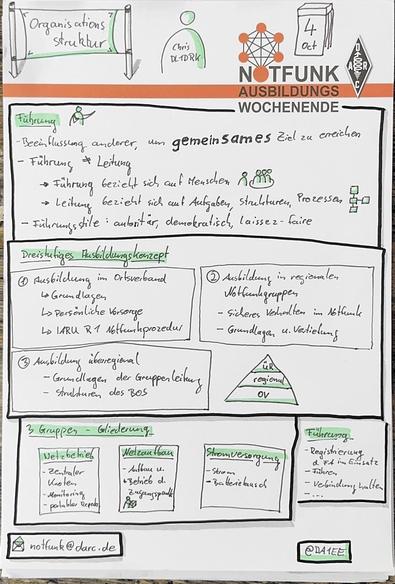 Organisations
struktur
Chris
DL1DRK
4
Oct
NOTFUNK
AUSBILDUNGS
WOCHENENDE
D
A R
C
Führung
- Beeinflussung anderer, um gemeinsames Ziel zu erreichen
- Führung ≠ Leitung
→ Führung bezieht sich auf Menschen
→ Leitung bezieht sich auf Aufgaben, Strukturen, Prozessen
- Führungsstile: autoritär, demokratisch, laissez-faire
Dreistufiges Ausbildungskonzept
① Ausbildung im Ortsverband
↳ Grundlagen
↳ Persönliche Vorsorge
↳ IARU R.1 Notfunkprozedur
② Ausbildung in regionalen
Notfunkgruppen
- Sicheres Verhalten im Notfunk
- Grundlagen u. Vertiefung
③ Ausbildung überregional
- Grundlagen der Gruppenleitung
- Strukturen des BOS
ÜR
regional
OV
3 Gruppen - Gliederung
Netzbetrieb
- Zentraler
Knoten
- Monitoring
- portabler
Netzaufbau
- Aufbau u.
Betrieb d.
Zugangspunkte
Stromversorgung
- Strom
- Batterietausch
Führung
- Registrierung
d. FA im Einsatz
- Führen
- Verbindung halten
- ...
notfunk@darc.de
@DA1EE